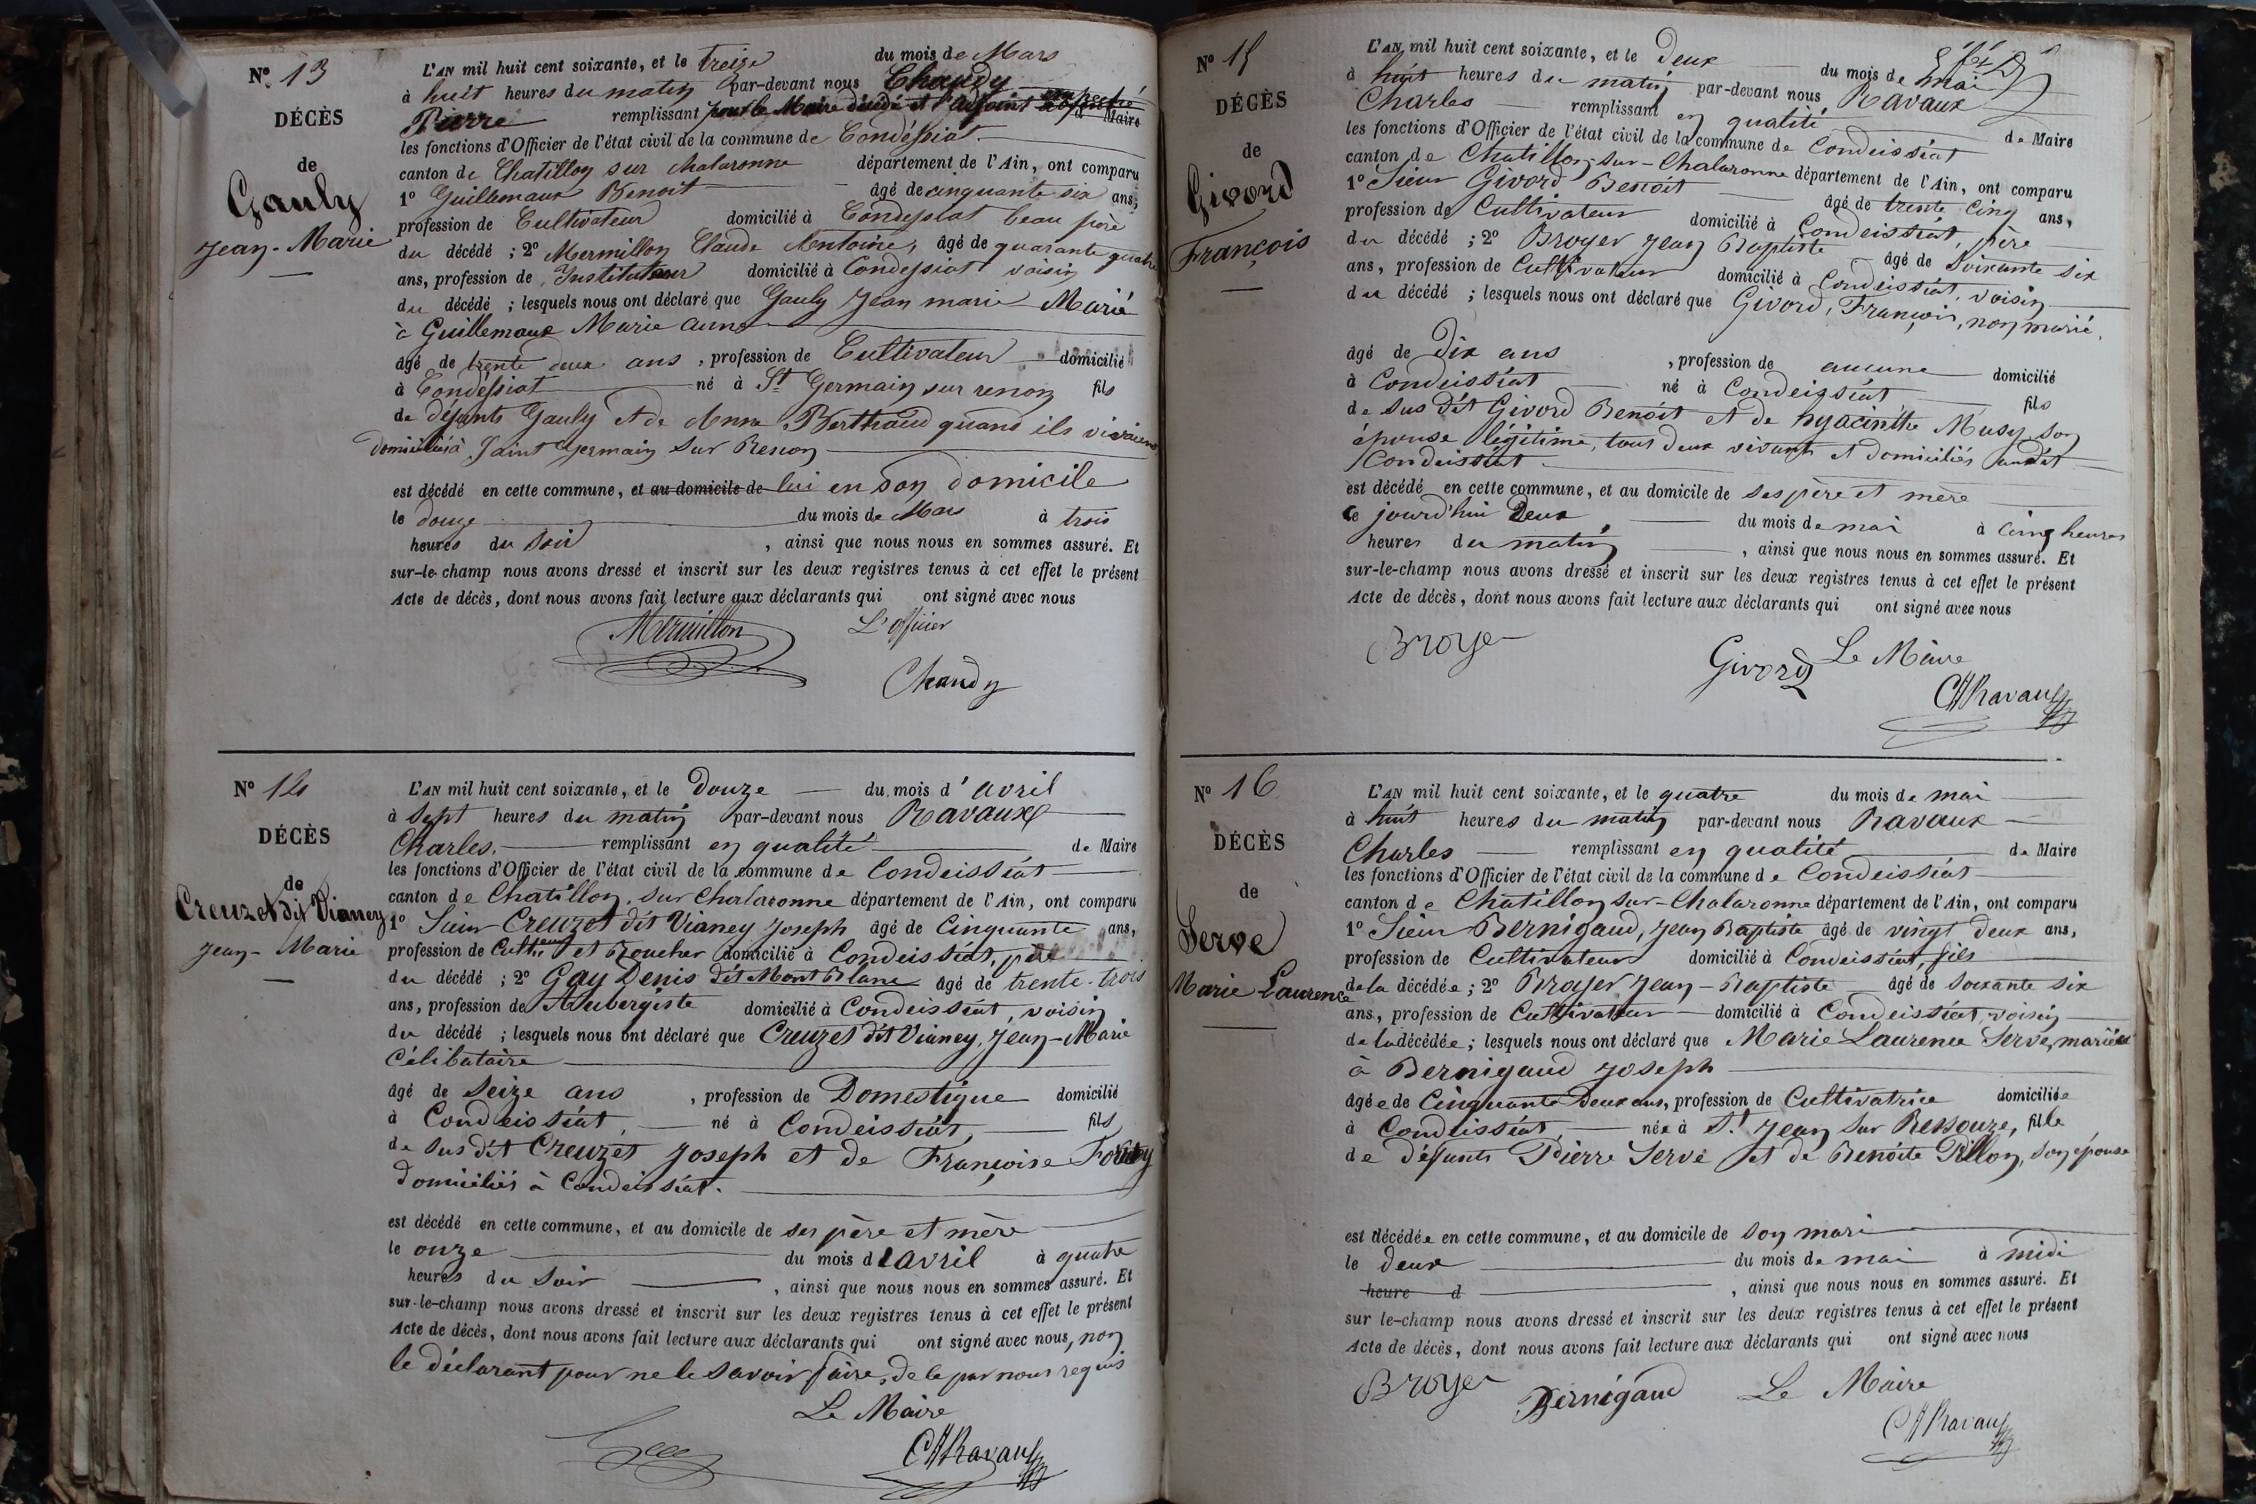 Nº 13
DÉCÈS
de
Gauly
Jean-Marie
L'AN mil huit cent soixante, et le treize du mois de Mars
à huit heures du matin par-devant nous Chaudy
Pierre remplissant pour le Maire décédé et l'adjoint de Maire
les fonctions d'Officier de l'état civil de la commune de Condéssiat
canton de Chatillon sur chalaronne département de l'Ain, ont comparu
1º Guillemaux Benoit âgé de cinquante six ans,
profession de Cultivateur domicilié à Condessiat beau père
du décédé ; 2º Mermillon Claude Antoine, âgé de quarante quatre
ans, profession de Instituteur domicilié à Condessiat voisin
du décédé ; lesquels nous ont déclaré que Gauly Jean marie Marié
à Guillemaux Marie anne
âgé de trente deux ans , profession de Cultivateur domicilié
à Condéssiat né à St Germain sur renon fils
de défunts Gauly et de Anne Berthaud quand ils vivaient
domiciliés à Saint Germain sur Renon
est décédé en cette commune, et au domicile de lui en son domicile
le douze du mois de Mars à trois
heures du soir , ainsi que nous nous en sommes assuré. Et
sur-le-champ nous avons dressé et inscrit sur les deux registres tenus à cet effet le présent
Acte de décès, dont nous avons fait lecture aux déclarants qui ont signé avec nous
Mermillon L'officier
Chaudy
Nº 14
DÉCÈS
de
Creuzet dit Vianey
Jean-Marie
L'AN mil huit cent soixante, et le Douze du mois d'avril
à sept heures du matin par-devant nous Ravaux
Charles. remplissant en qualité de Maire
les fonctions d'Officier de l'état civil de la commune de Condeissiat
canton de Chatillon sur Chalaronne département de l'Ain, ont comparu
1º Sieur Creuzet dit Vianey Joseph âgé de Cinquante ans,
profession de Cultteur et Boucher domicilié à Condeissiat, père
du décédé ; 2º Gay Denis dit Mont Blanc âgé de trente-trois
ans, profession de Aubergiste domicilié à Condeissiat, voisin
du décédé ; lesquels nous ont déclaré que Creuzet dit Vianey, Jean-Marie
Célibataire
âgé de Seize ans , profession de Domestique domicilié
à Condeissiat, né à Condeissiat, fils
de susdit Creuzet Joseph et de Françoise
Domiciliés à Condeissiat.
est décédé en cette commune, et au domicile de ses père et mère
le onze du mois d'avril à quatre
heures du soir , ainsi que nous nous en sommes assuré. Et
sur-le-champ nous avons dressé et inscrit sur les deux registres tenus à cet effet le présent
Acte de décès, dont nous avons fait lecture aux déclarants qui ont signé avec nous, non
le déclarant pour ne le savoir faire, de ce par nous requis
Le Maire
Gay CH Ravaux
Nº 15
DÉCÈS
de
Givord
François
L'AN mil huit cent soixante, et le deux du mois de mai
à huit heures du matin par-devant nous Ravaux
Charles remplissant en qualité de Maire
les fonctions d'Officier de l'état civil de la commune de Condeissiat
canton de Chatillon-sur-Chalaronne département de l'Ain, ont comparu
1º Sieur Givord Benoit âgé de trente cinq ans,
profession de Cultivateur domicilié à Condeissiat, père
du décédé ; 2º Broyer Jean Baptiste âgé de soixante six
ans, profession de Cultivateur domicilié à Condeissiat, voisin
du décédé ; lesquels nous ont déclaré que Givord, François, non marié,
âgé de Dix ans , profession de aucune domicilié
à Condeissiat né à Condeissiat fils
de susdit Givord Benoit et de hyacinthe Musy son
épouse légitime, tous deux vivants et domiciliés audit
Condeissiat
est décédé en cette commune, et au domicile de ses père et mère
ce jourd'hui Deux du mois de mai à cinq heures
heures du matin , ainsi que nous nous en sommes assuré. Et
sur-le-champ nous avons dressé et inscrit sur les deux registres tenus à cet effet le présent
Acte de décès, dont nous avons fait lecture aux déclarants qui ont signé avec nous
Broyer Givord Le Maire
CH Ravaux
Nº 16
DÉCÈS
de
Serve
Marie Laurence
L'AN mil huit cent soixante, et le quatre du mois de mai
à huit heures du matin par-devant nous Ravaux
Charles remplissant en qualité de Maire
les fonctions d'Officier de l'état civil de la commune de Condeissiat
canton de Chatillon sur-Chalaronne département de l'Ain, ont comparu
1º Sieur Bernigaud, Jean Baptiste âgé de vingt deux ans,
profession de Cultivateur domicilié à Condeissiat, fils
de la décédée ; 2º Broyer Jean-Baptiste âgé de soixante six
ans, profession de Cultivateur domicilié à Condeissiat, voisin
de la décédée ; lesquels nous ont déclaré que Marie Laurence Serve, mariée
à Bernigaud Joseph
âgée de Cinquante Deux ans, profession de Cultivatrice domiciliée
à Condeissiat, née à St Jean sur Ressouze, fille
de défunts Pierre Serve et de Benoite Pillon, son épouse
est décédée en cette commune, et au domicile de son mari
le deux du mois de mai à midi
heure d , ainsi que nous nous en sommes assuré. Et
sur le-champ nous avons dressé et inscrit sur les deux registres tenus à cet effet le présent
Acte de décès, dont nous avons fait lecture aux déclarants qui ont signé avec nous
Broyer Bernigaud Le Maire
CH Ravaux